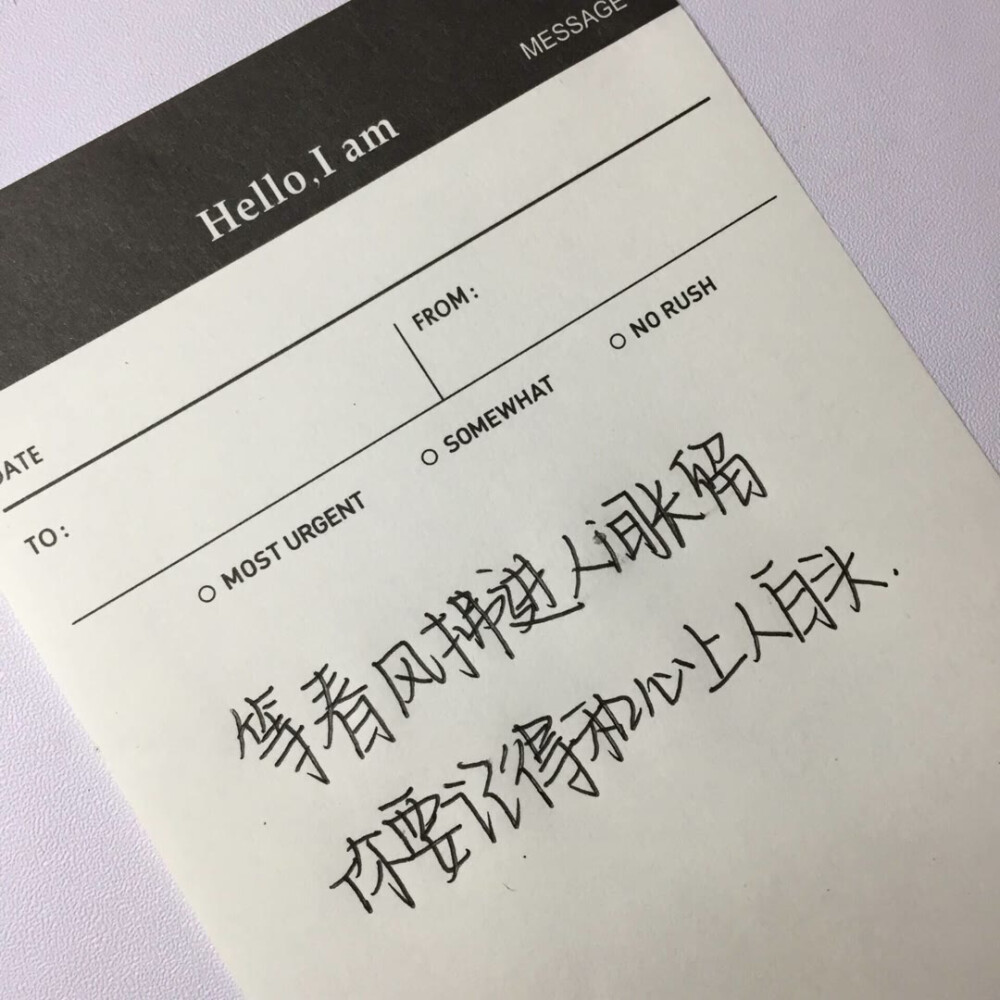 MESSAGE
Hello, I am
DATE
FROM:
TO:
MOST URGENT
SOMEWHAT
NO RUSH
等春风拂进人间长留
你要记得和心上人白头.